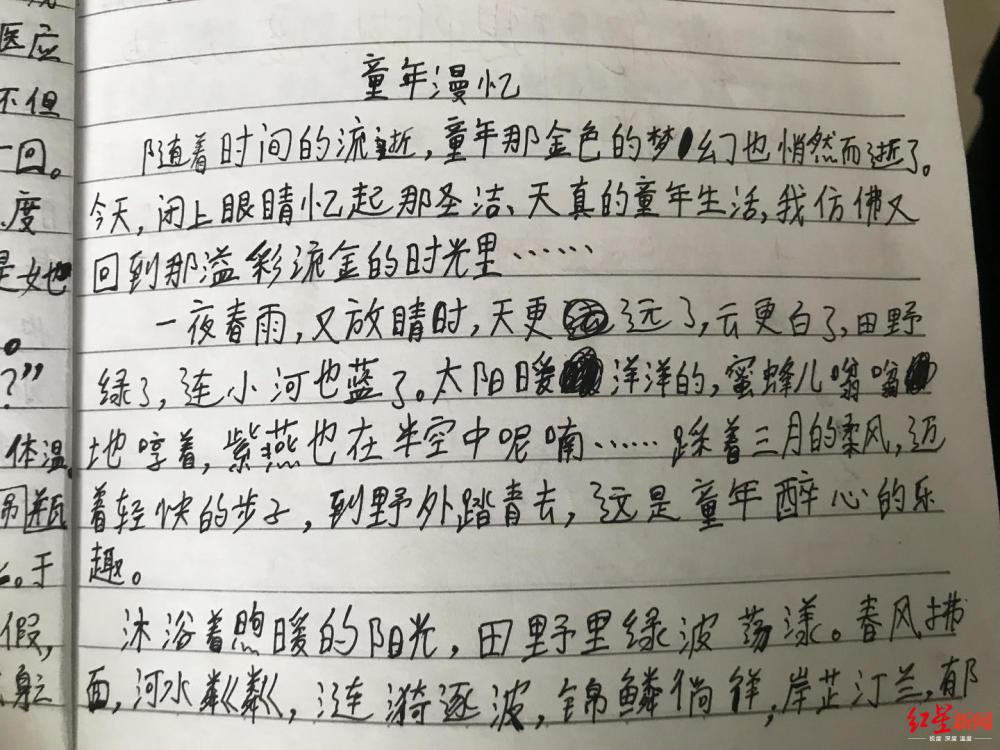 医应
不但
一回。
度
是她
。
？”
体温
吊瓶
。于
假，
童年漫忆
随着时间的流逝，童年那金色的梦幻也悄然而逝了。
今天，闭上眼睛忆起那圣洁、天真的童年生活，我仿佛又
回到那溢彩流金的时光里……
一夜春雨，又放晴时，天更远了，云更白了，田野
绿了，连小河也蓝了。太阳暖洋洋的，蜜蜂儿嗡嗡
地哼着，紫燕也在半空中呢喃……踩着三月的柔风，迈
着轻快的步子，到野外踏青去，这是童年醉心的乐
趣。
沐浴着煦暖的阳光，田野里绿波荡漾。春风拂
面，河水粼粼，涟漪逐波，锦鳞徜徉，岸芷汀兰，郁
红星新闻
态度 深度 温度